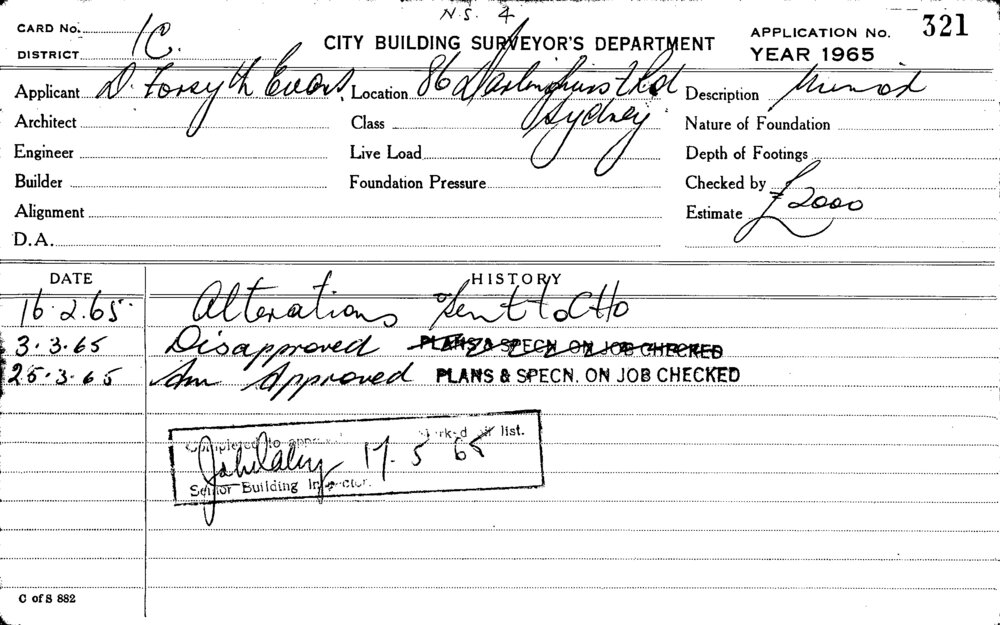 N.S. 4
CARD No. 1C. CITY BUILDING SURVEYOR'S DEPARTMENT APPLICATION No. 321
DISTRICT YEAR 1965
Applicant D. Forsyth Evans Location 86 Darlinghurst Rd Description
Sydney
Architect Class Nature of Foundation
Engineer Live Load Depth of Footings
Builder Foundation Pressure Checked by
Alignment Estimate £2000
D.A.
DATE HISTORY
16.2.65 Alterations Sent to CHO
3.3.65 Disapproved PLANS & SPECN. ON JOB CHECKED
25.3.65 Am Approved PLANS & SPECN. ON JOB CHECKED
Completed to list.
17.5.65
Senior Building Inspector.
C of S 882